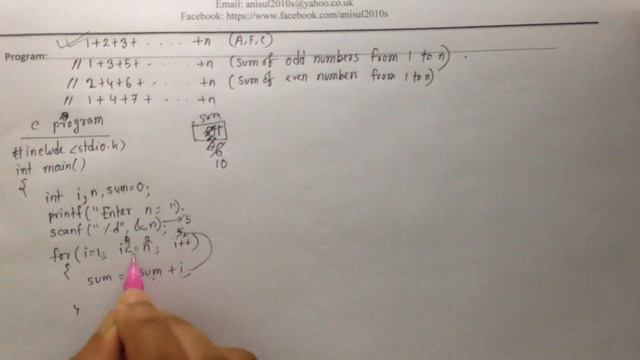 Email: anisul2010s@yahoo.co.uk
Facebook: https://www.facebook.com/anisul2010s
Program:
1+2+3+ ..... +n (A, F, C)
// 1+3+5+ ..... +n (Sum of odd numbers from 1 to n).
// 2+4+6+ ..... +n (Sum of even numbers from 1 to n)
// 1+4+7+ ..... +n
C program
sum
10
#include <stdio.h>
int main()
{
int i, n, sum=0;
printf("Enter n= ");
scanf("%d", &n); 5
for(i=1; i<=n; i++)
{
sum = sum + i;
}